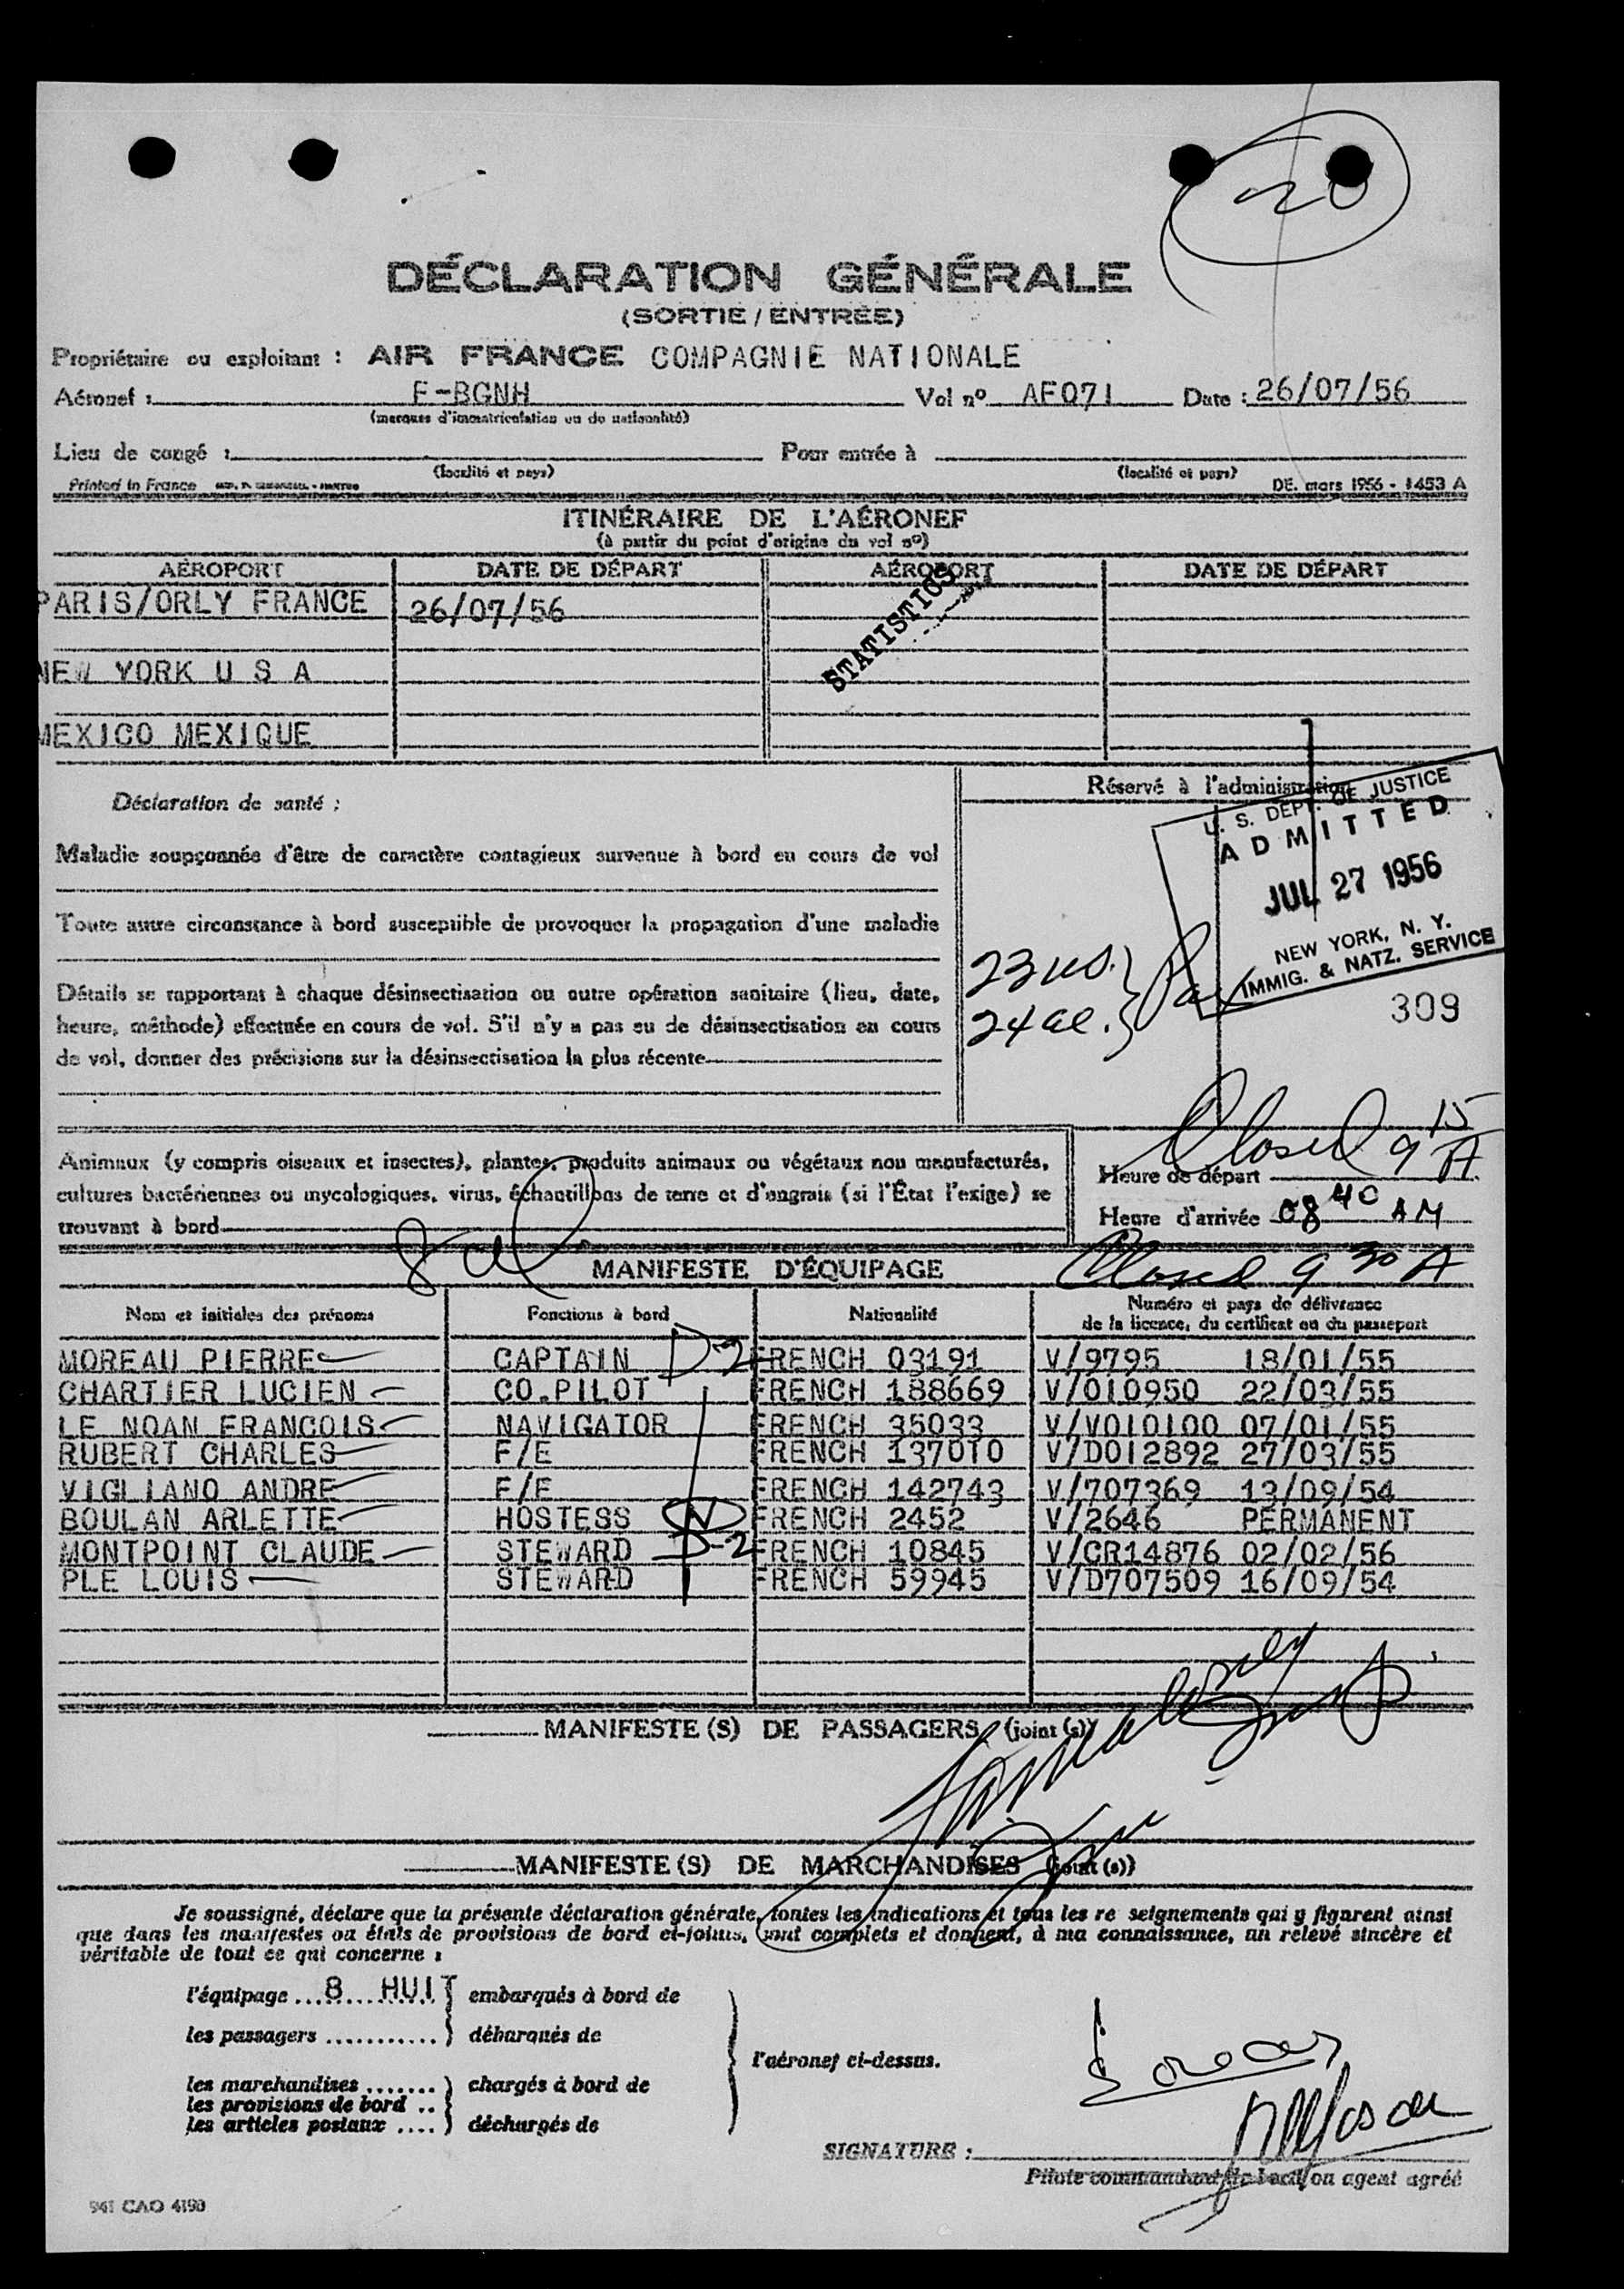 20
DÉCLARATION GÉNÉRALE
(SORTIE / ENTRÉE)
Propriétaire ou exploitant : AIR FRANCE COMPAGNIE NATIONALE
Aéronef : F-BGNH Vol nº AF071 Date : 26/07/56
(marques d'immatriculation ou de nationalité)
Lieu de congé : Pour entrée à
(localité et pays) (localité et pays)
Printed in France DE. mars 1956 - 1453 A
ITINÉRAIRE DE L'AÉRONEF
(à partir du point d'origine du vol nº)
AÉROPORT DATE DE DÉPART AÉROPORT DATE DE DÉPART
PARIS/ORLY FRANCE 26/07/56
STATISTICS
NEW YORK U S A
MEXICO MEXIQUE
Déclaration de santé :
Réservé à l'administration
U. S. DEPT. OF JUSTICE
ADMITTED
JUL 27 1956
NEW YORK, N. Y.
IMMIG. & NATZ. SERVICE
309
Maladie soupçonnée d'être de caractère contagieux survenue à bord en cours de vol
Toute autre circonstance à bord susceptible de provoquer la propagation d'une maladie
23 us.
24 al.
Détails se rapportant à chaque désinsectisation ou autre opération sanitaire (lieu, date,
heure, méthode) effectuée en cours de vol. S'il n'y a pas eu de désinsectisation en cours
de vol, donner des précisions sur la désinsectisation la plus récente
Animaux (y compris oiseaux et insectes), plantes, produits animaux ou végétaux non manufacturés,
cultures bactériennes ou mycologiques, virus, échantillons de terre et d'engrais (si l'État l'exige) se
trouvant à bord
Closed 9 15 A
Heure de départ
Heure d'arrivée 08 40 AM
Closed 9 30 A
8 al
MANIFESTE D'ÉQUIPAGE
Nom et initiales des prénoms Fonctions à bord Nationalité Numéro et pays de délivrance
de la licence, du certificat ou du passeport
MOREAU PIERRE CAPTAIN D-2 FRENCH 03191 V/9795 18/01/55
CHARTIER LUCIEN CO.PILOT FRENCH 188669 V/010950 22/03/55
LE NOAN FRANCOIS NAVIGATOR FRENCH 35033 V/V010100 07/01/55
RUBERT CHARLES F/E FRENCH 137010 V/D012892 27/03/55
VIGLIANO ANDRE F/E FRENCH 142743 V/707369 13/09/54
BOULAN ARLETTE HOSTESS N FRENCH 2452 V/2646 PERMANENT
MONTPOINT CLAUDE STEWARD D-2 FRENCH 10845 V/CR14876 02/02/56
PLE LOUIS STEWARD FRENCH 59945 V/D707509 16/09/54
MANIFESTE (S) DE PASSAGERS (joint (s))
MANIFESTE (S) DE MARCHANDISES (joint (s))
Je soussigné, déclare que la présente déclaration générale, toutes les indications et tous les re seignements qui y figurent ainsi
que dans les manifestes ou états de provisions de bord ci-joints, sont complets et donnent, à ma connaissance, un relevé sincère et
véritable de tout ce qui concerne :
l'équipage ... 8 HUIT } embarqués à bord de
les passagers ........... } débarqués de
l'aéronef ci-dessus.
les marchandises ....... } chargés à bord de
les provisions de bord ..
les articles postaux .... } déchargés de
SIGNATURE :
Pilote commandant de bord ou agent agréé
941 CAO 4190